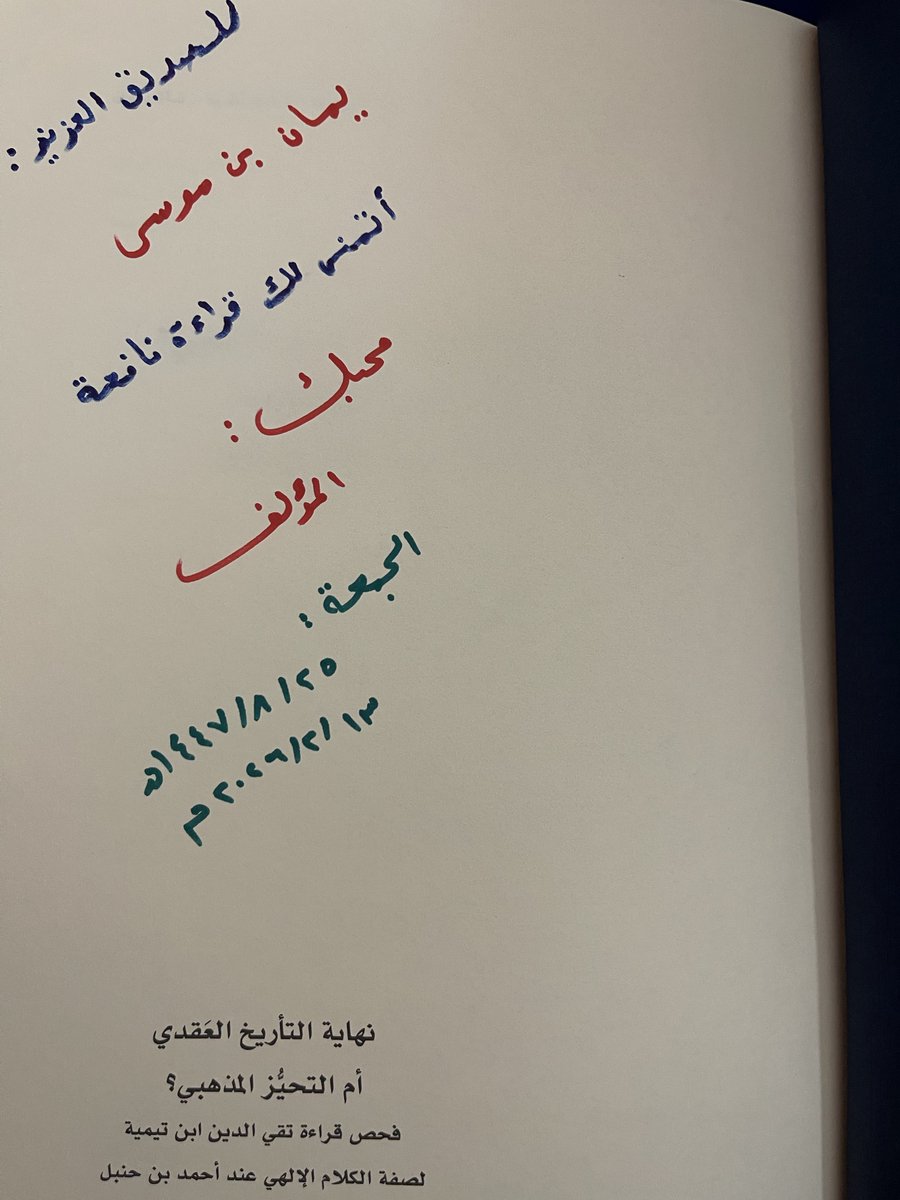 للصديق العزيز :
يمان بن موسى
أتمنى لك قراءة نافعة
محبك :
المؤلف
الجمعة :
٢٥/٨/١٤٤٧هـ
١٣/٢/٢٠٢٦م
نهاية التأريخ العَقدي
أم التحيُّز المذهبي؟
فحص قراءة تقي الدين ابن تيمية
لصفة الكلام الإلهي عند أحمد بن حنبل